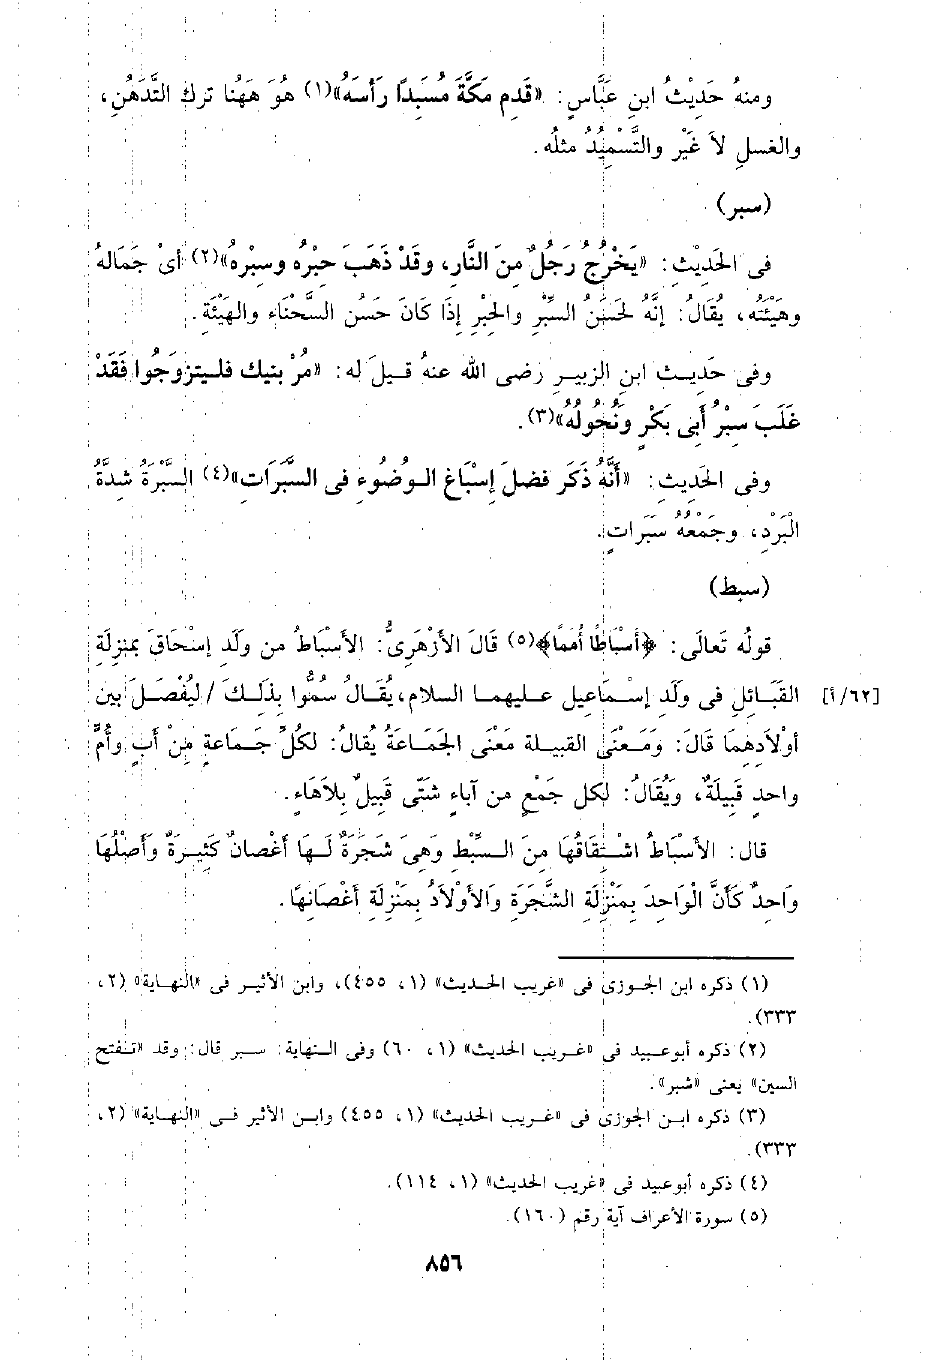 ومنهُ حَدِيْثُ ابنِ عَبَّاسٍ: «قَدِم مَكَّةَ مُسَبِدًا رَأسَهُ»(١) هُوَ هَهُنا ترك التَّدَهُنِ،
والغسلِ لاَ غَيْر والتَّسْمِيْدُ مثلُه.
(سبر)
فى الحَدِيْثِ: «يَخْرِجُ رَجُلٌ مِنَ النَّارِ، وقَدْ ذَهَبَ حِبْرُه وسِبْرهُ»(٢) أىْ جَمَالهُ
وهَيْئَته، يُقَالُ: إنَّهُ لَحَسَنُ السِّبْرِ والحِبْرِ إذَا كَانَ حَسُن السَّحْنَاء والهَيْئَةِ.
وفى حَدِيث ابنِ الزبير رضى الله عنهُ قيلَ له: «مُرْ بنيك فليتزوجُوا فَقَدْ
غَلَبَ سِبْرُ أَبِى بَكْرٍ ونُحُولُهُ»(٣).
وفى الحَدِيثِ: «أَنَّهُ ذَكَر فضلَ إسْبَاغِ الوُضُوءِ فى السَّبَرَاتِ»(٤) السَّبْرَةُ شدَّةُ
الْبَرْدِ، وجَمْعُهُ سَبَرَاتٍ.
(سبط)
قولُه تَعالَى: ﴿أَسْبَاطًا أُمَمًا﴾(٥) قَالَ الأزْهَرِىُّ: الأسْبَاطُ من ولَدِ إسْحَاقَ بمنزلةِ
القَبَائلِ فى ولَدِ إسْمَاعيل عليهما السلام، يُقَالُ سُمُّوا بِذَلِكَ / ليُفْصَلَ بين [٦٢/أ]
أوْلاَدِهِمَا قَالَ: وَمَعْنَى القبيلة مَعْنَى الجَمَاعَةُ يُقالُ: لكُلِّ جَمَاعةٍ مِنْ أبٍ وأمٍّ
واحدٍ قَبِيلَةٌ، وَيُقَالُ: لِكل جَمْعٍ من آباءٍ شَتَّى قَبِيلٌ بِلاَهَاءٍ.
قال: الأسْبَاطُ اشْتِقَاقُهَا مِنَ السَّبْطِ وهَىَ شَجَرَةٌ لَهَا أغْصَانٌ كَثِيرَةٌ وَأصْلُهَا
وَاحِدٌ كَأنَّ الْوَاحِدَ بِمَنْزِلَةِ الشَّجَرَةِ وَالأوْلاَدُ بِمَنْزِلَةِ أغْصَانِهَا.
(١) ذكره ابن الجوزى فى «غريب الحديث» (١، ٤٥٥)، وابن الأثير فى «النهاية» (٢،
٣٣٣).
(٢) ذكره أبوعبيد فى «غريب الحديث» (١، ٦٠) وفى النهاية: سبر قال: وقد «تفتح
السين» يعنى «شبر».
(٣) ذكره ابن الجوزى فى «غريب الحديث» (١، ٤٥٥) وابن الأثير فى «النهاية» (٢،
٣٣٣).
(٤) ذكره أبوعبيد فى «غريب الحديث» (١، ١١٤).
(٥) سورة الأعراف آية رقم (١٦٠).
٨٥٦